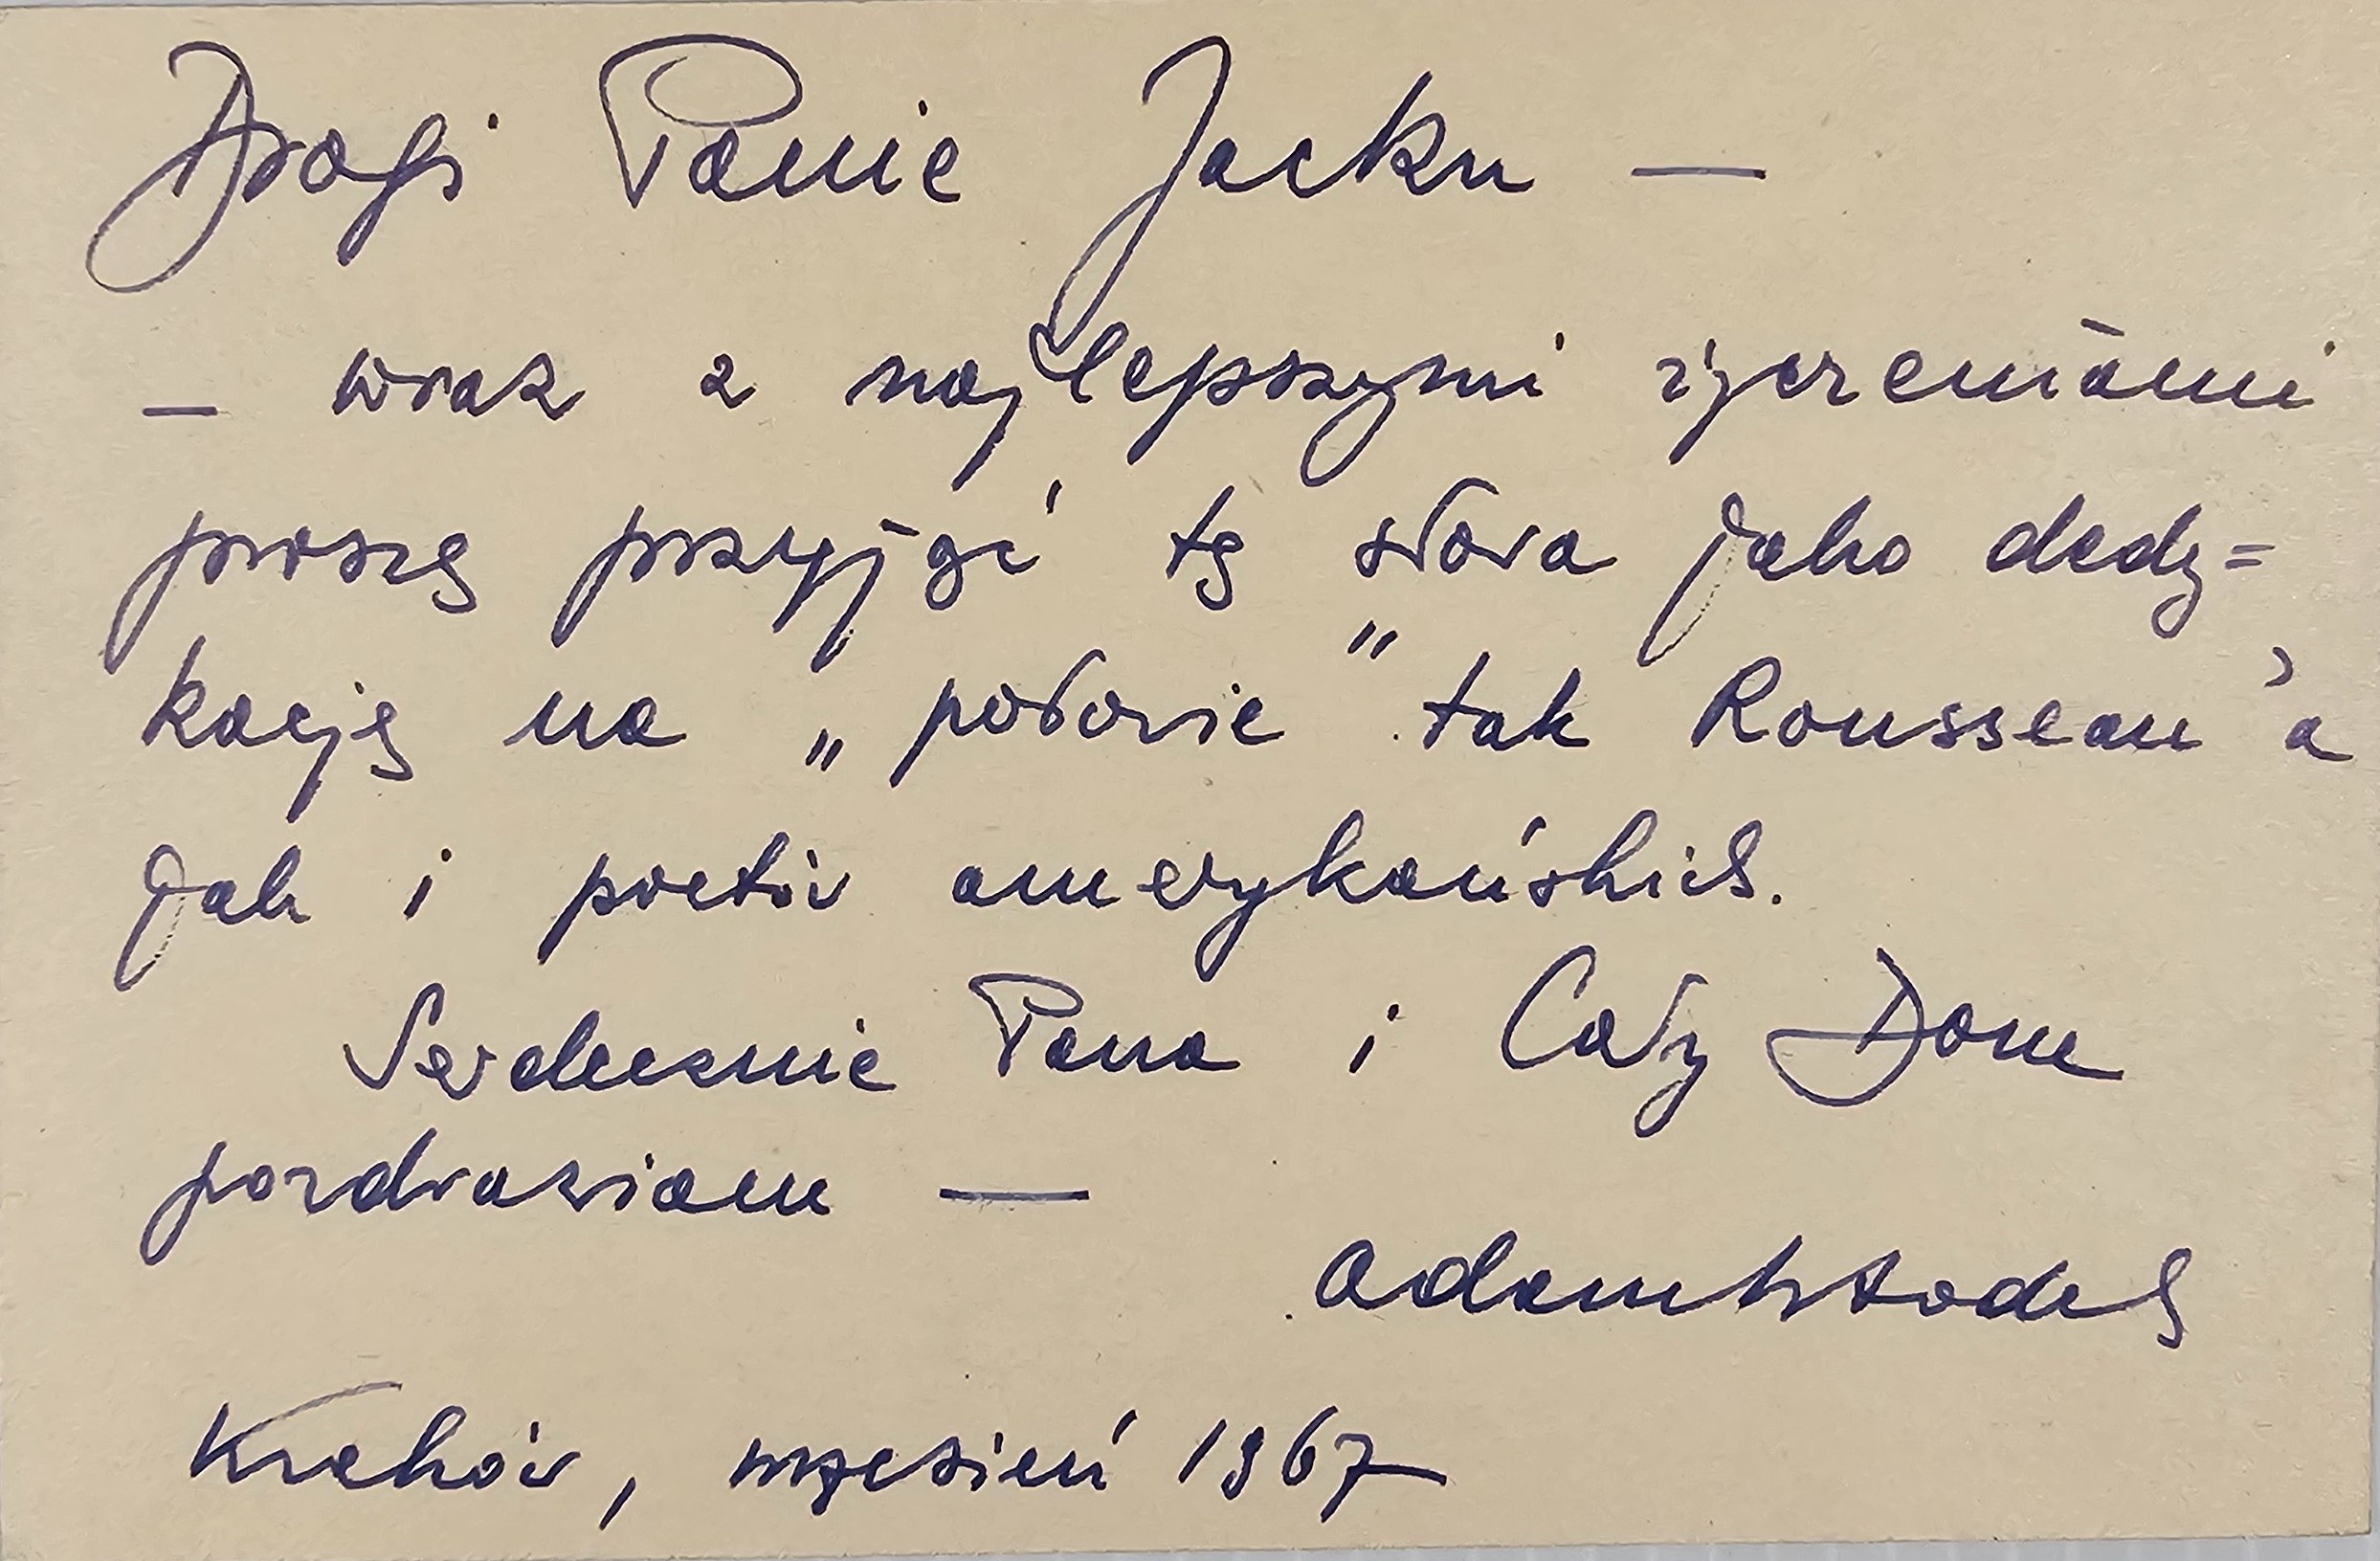 Drogi Panie Jacku —
— wraz z najlepszymi życzeniami
proszę przyjąć tę słowa jako dedy=
kację na „połowie" tak Rousseau'a
jak i poetów amerykańskich.
Serdecznie Pana i Cały Dom
pozdrawiam —
Kraków, wrzesień 1967